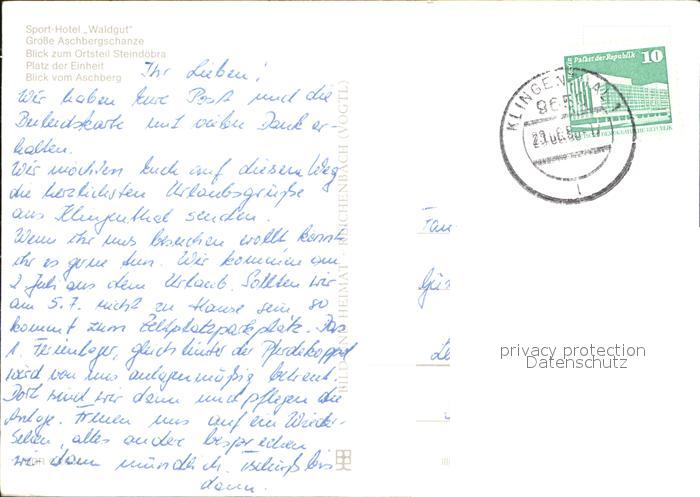 Sport-Hotel „Waldgut"
Große Aschbergschanze
Blick zum Ortsteil Steindöbra
Platz der Einheit
Blick vom Aschberg
Ihr Lieben!
Wir haben Eure Post und die
Beileidskarte mit vielen Dank er-
halten.
Wir möchten Euch auf diesem Weg
die herzlichsten Urlaubsgrüße
aus Klingenthal senden.
Wenn ihr uns besuchen wollt könnt
ihr es gerne tun. Wir kommen am
2. Juli aus dem Urlaub. Sollten wir
am 5.7. nicht zu Hause sein, so
kommt zum Zeltplatzparkplatz. Das
1. Ferienlager, gleich hinter der Pferdekoppel
wird von uns anlagenmäßig betreut.
Dort sind wir dann und pflegen die
Anlage. Freuen uns auf ein Wieder-
sehen, alles andere besprechen
wir dann mündlich. Tschüß bis
dann.
BILD UND HEIMAT REICHENBACH (VOGTL)
Palast der Republik
10
KLINGENTHAL 1
965
Fam
Gü
privacy protection
Datenschutz